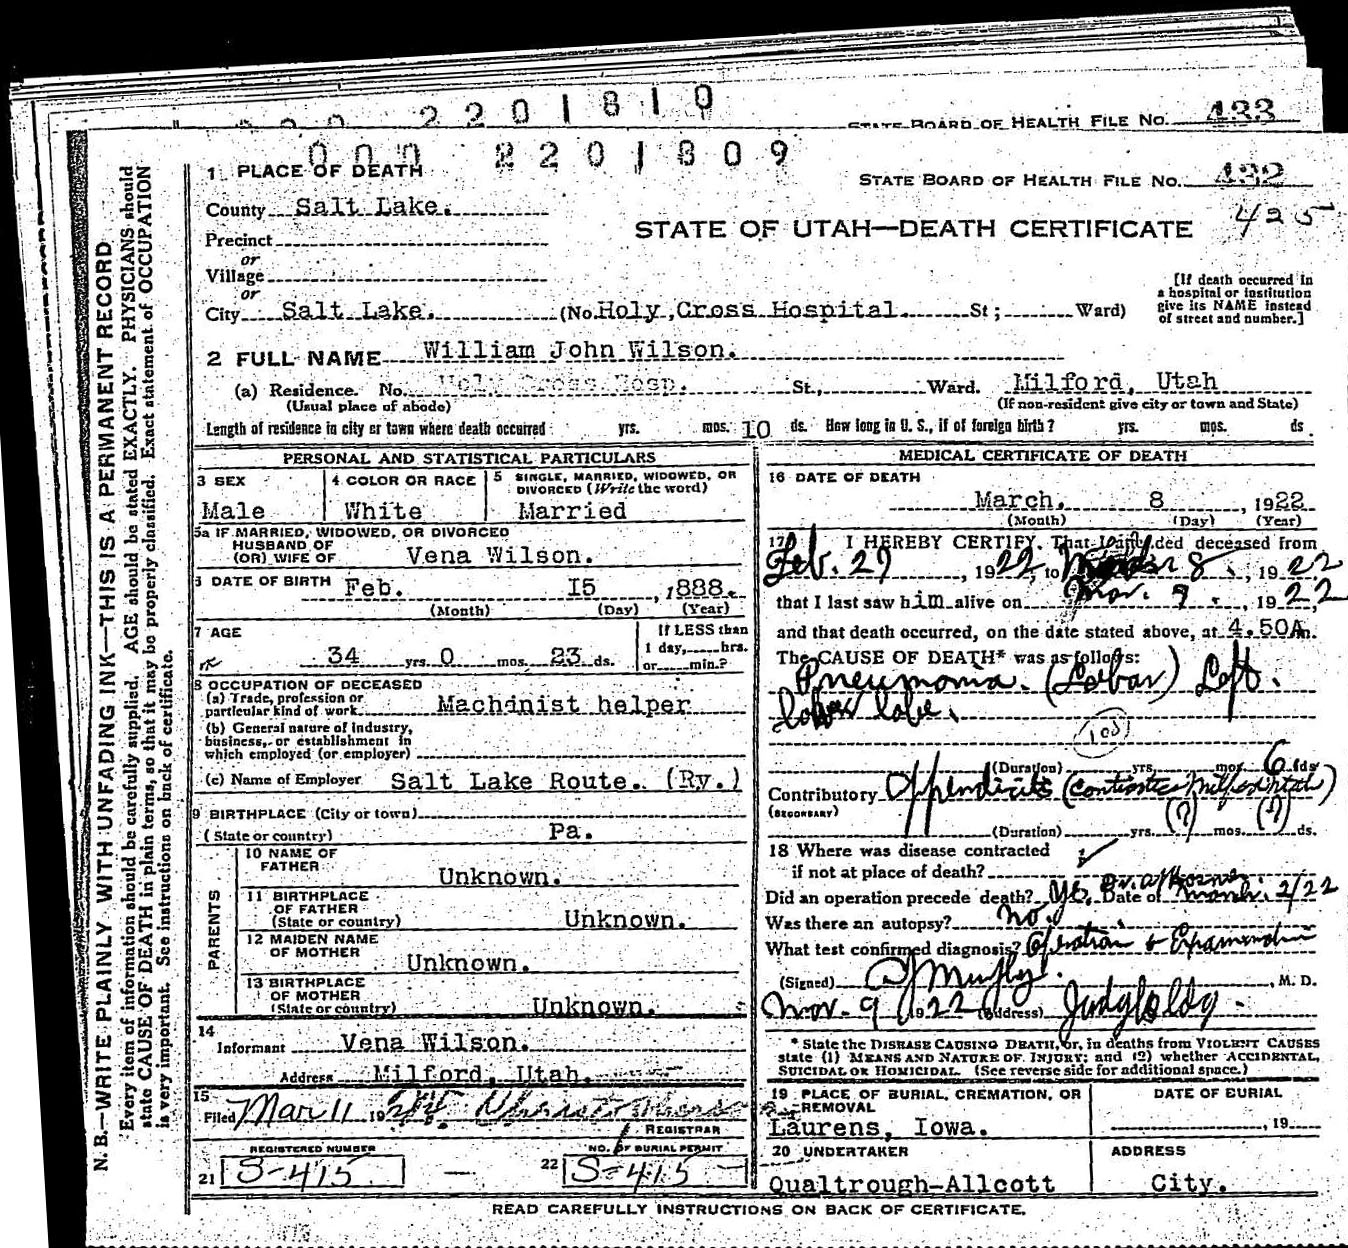 2201810
STATE BOARD OF HEALTH FILE No. 433
000 2201809
1 PLACE OF DEATH
STATE BOARD OF HEALTH FILE No. 432
425
County Salt Lake.
STATE OF UTAH—DEATH CERTIFICATE
Precinct
or
Village
or
City Salt Lake. (No. Holy Cross Hospital St; Ward)
[If death occurred in
a hospital or institution
give its NAME instead
of street and number.]
2 FULL NAME William John Wilson.
(a) Residence. No. Holy Cross Hosp. St., Ward. Milford, Utah
(Usual place of abode) (If non-resident give city or town and State)
Length of residence in city or town where death occurred yrs. mos. 10 ds. How long in U. S., if of foreign birth? yrs. mos. ds.
PERSONAL AND STATISTICAL PARTICULARS
3 SEX 4 COLOR OR RACE 5 SINGLE, MARRIED, WIDOWED, OR
DIVORCED (Write the word)
Male White Married
5a IF MARRIED, WIDOWED, OR DIVORCED
HUSBAND OF
(OR) WIFE OF Vena Wilson.
6 DATE OF BIRTH Feb. 15, 1888.
(Month) (Day) (Year)
7 AGE If LESS than
1 day, hrs.
34 yrs. 0 mos. 23 ds. or min.?
8 OCCUPATION OF DECEASED
(a) Trade, profession or
particular kind of work Machinist helper
(b) General nature of industry,
business, or establishment in
which employed (or employer)
(c) Name of Employer Salt Lake Route. (Ry.)
9 BIRTHPLACE (City or town)
(State or country) Pa.
PARENTS
10 NAME OF
FATHER Unknown.
11 BIRTHPLACE
OF FATHER
(State or country) Unknown.
12 MAIDEN NAME
OF MOTHER Unknown.
13 BIRTHPLACE
OF MOTHER
(State or country) Unknown.
14
Informant Vena Wilson.
Address Milford, Utah.
15
Filed Mar 11 19
REGISTRAR
REGISTERED NUMBER NO. OF BURIAL PERMIT
21 S-415 — 22 S-415
MEDICAL CERTIFICATE OF DEATH
16 DATE OF DEATH
March. 8, 1922
(Month) (Day) (Year)
17 I HEREBY CERTIFY, That I attended deceased from
Feb. 29, 1922, to 8, 1922
that I last saw him alive on Mar. 9, 1922,
and that death occurred, on the date stated above, at 4.50A m.
The CAUSE OF DEATH* was as follows:
Pneumonia. (Lobar) Left.
lower lobe.
(Duration) yrs. mos. 6 ds.
Contributory Appendicitis
(SECONDARY)
(Duration) yrs. (?) mos. (?) ds.
18 Where was disease contracted
if not at place of death?
Did an operation precede death? Yes. Date of March. 2/22
Was there an autopsy? no.
What test confirmed diagnosis? Operation &
(Signed) , M. D.
9 1922 (Address) Judge Bldg.
* State the DISEASE CAUSING DEATH, or, in deaths from VIOLENT CAUSES
state (1) MEANS AND NATURE OF INJURY; and (2) whether ACCIDENTAL,
SUICIDAL OR HOMICIDAL. (See reverse side for additional space.)
19 PLACE OF BURIAL, CREMATION, OR
REMOVAL DATE OF BURIAL
Laurens, Iowa. , 19
20 UNDERTAKER ADDRESS
Qualtrough-Allcott City.
READ CAREFULLY INSTRUCTIONS ON BACK OF CERTIFICATE.
N. B.—WRITE PLAINLY WITH UNFADING INK—THIS IS A PERMANENT RECORD
Every item of information should be carefully supplied. AGE should be stated EXACTLY. PHYSICIANS should
state CAUSE OF DEATH in plain terms, so that it may be properly classified. Exact statement of OCCUPATION
is very important. See instructions on back of certificate.